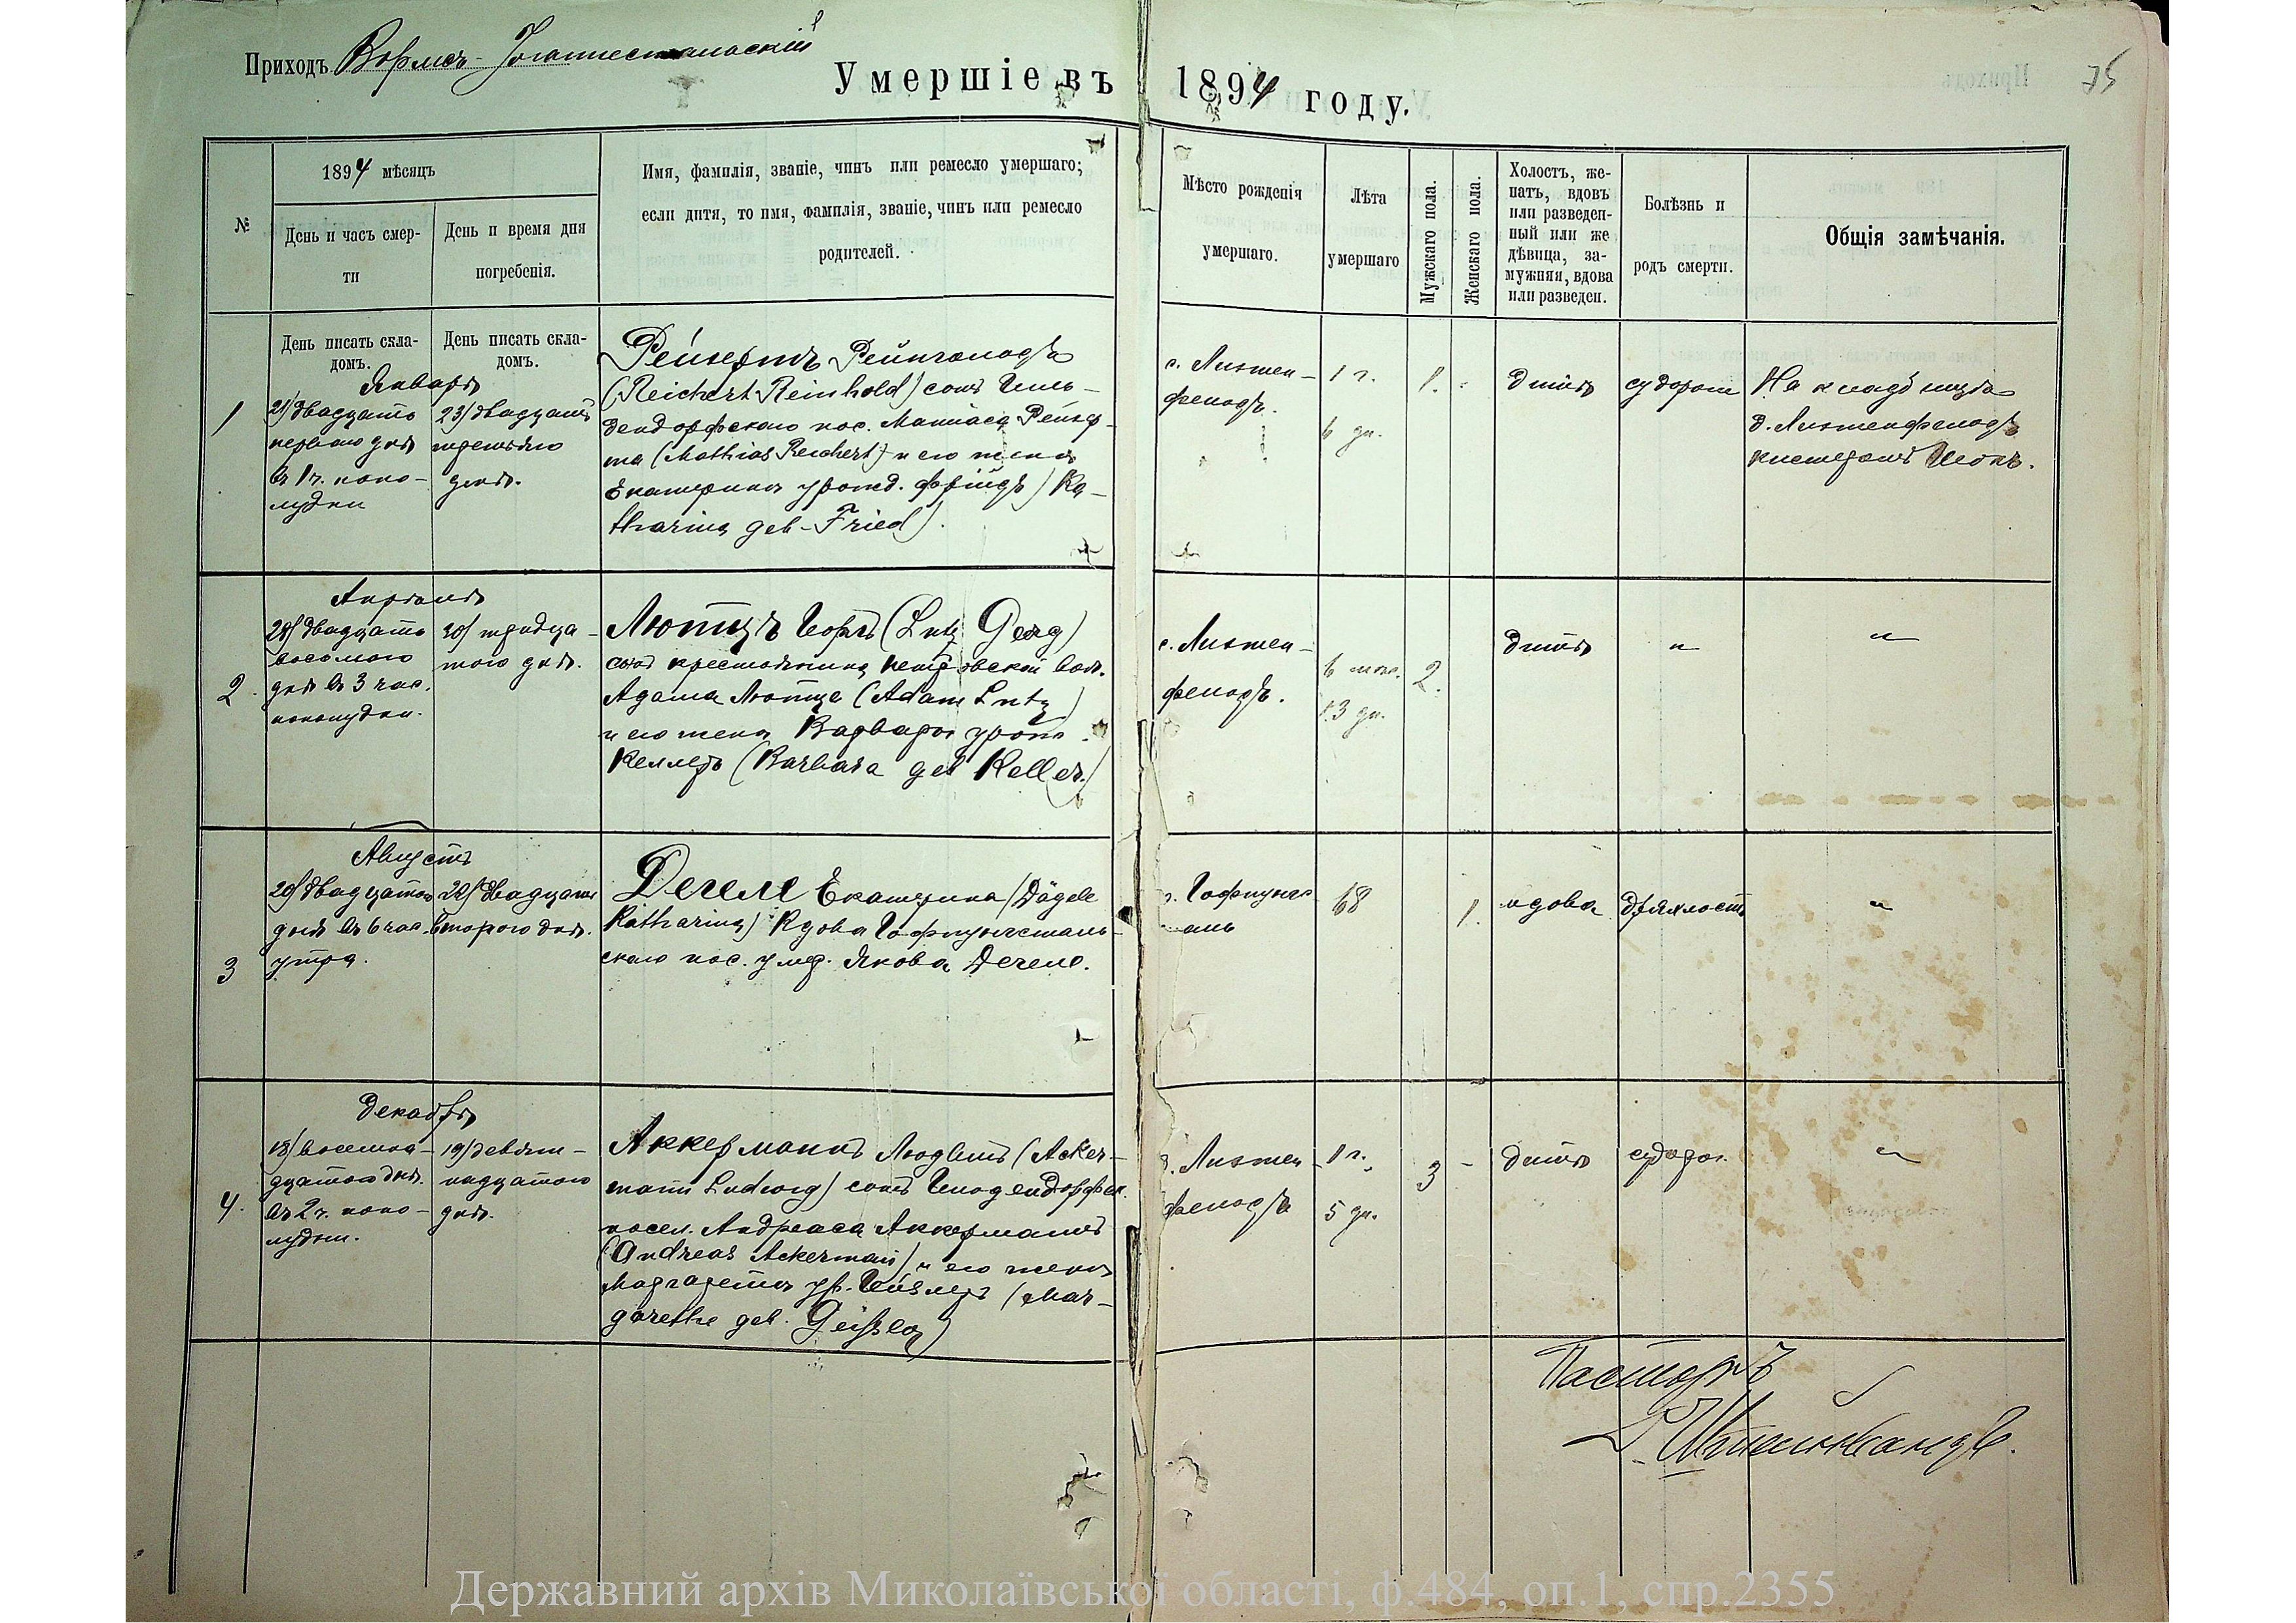 Приходъ Вормсъ-Іоганнестальскій
Умершіе въ 1894 году.
75
№
1894 мѣсяцъ
День и часъ смер-
ти
День и время дня
погребенія.
Имя, фамилія, званіе, чинъ или ремесло умершаго;
если дитя, то имя, фамилія, званіе, чинъ или ремесло
родителей.
Мѣсто рожденія
умершаго.
Лѣта
умершаго
Мужскаго пола.
Женскаго пола.
Холостъ, же-
натъ, вдовъ
или разведен-
ный или же
дѣвица, за-
мужняя, вдова
или разведен.
Болѣзнь и
родъ смерти.
Общія замѣчанія.
День писать скла-
домъ.
День писать скла-
домъ.
Январь
1
21/двадцать
перваго дня
въ 1 ч. попо-
лудни
23/двадцать
третьяго
дня.
Рейхертъ Рейнгольдъ
(Reichert Reinhold) сынъ
дендорфскаго пос. Матіаса Рейхер-
та (Mathias Reichert) и его жены
Екатерины урожд. Фрійдъ) Ka-
tharina geb. Fried).
с. Лихтен-
фельдъ.
1 г.
6 дн.
1.
дитя
судороги
На кладбищѣ
д. Лихтенфельдъ
кистеромъ
Апрѣль
2.
28/двадцать
восьмого
дня въ 3 час.
пополудни.
30/тридца-
таго дня.
Лютцъ Георгъ (Lutz Georg)
сынъ крестьянина Петровской вол.
Адама Лютца (Adam Lutz)
и его жены Варвары урожд.
Келлеръ (Barbara geb Keller.)
с. Лихтен-
фельдъ.
6 мѣс.
13 дн.
2.
дитя
"
"
Августъ
3
20/двадцатаго
дня въ 6 час.
утра.
22/двадцать
второго дня.
Дегеле Екатерина (Dägele
Katharina) Вдова Гофнунгсталь-
скаго пос. умер. Якова Дегеле.
с. Гофнунгс
таль
68
1.
вдова
дряхлость
"
Декабрь
4.
18/восемна-
дцатаго дня.
въ 2 ч. попо-
лудни.
19/девят-
надцатаго
дня.
Аккерманъ Людвигъ (Acker-
mann Ludwig) сынъ
посел. Андреаса Аккермана
(Andreas Ackermann) и его жены
Маргареты ур. Гейслеръ (Mar-
garethe geb. Geißler)
с. Лихтен-
фельдъ
1 г.
5 дн.
3
-
дитя
судорог.
"
Пасторъ
Державний архів Миколаївської області, ф.484, оп.1, спр.2355